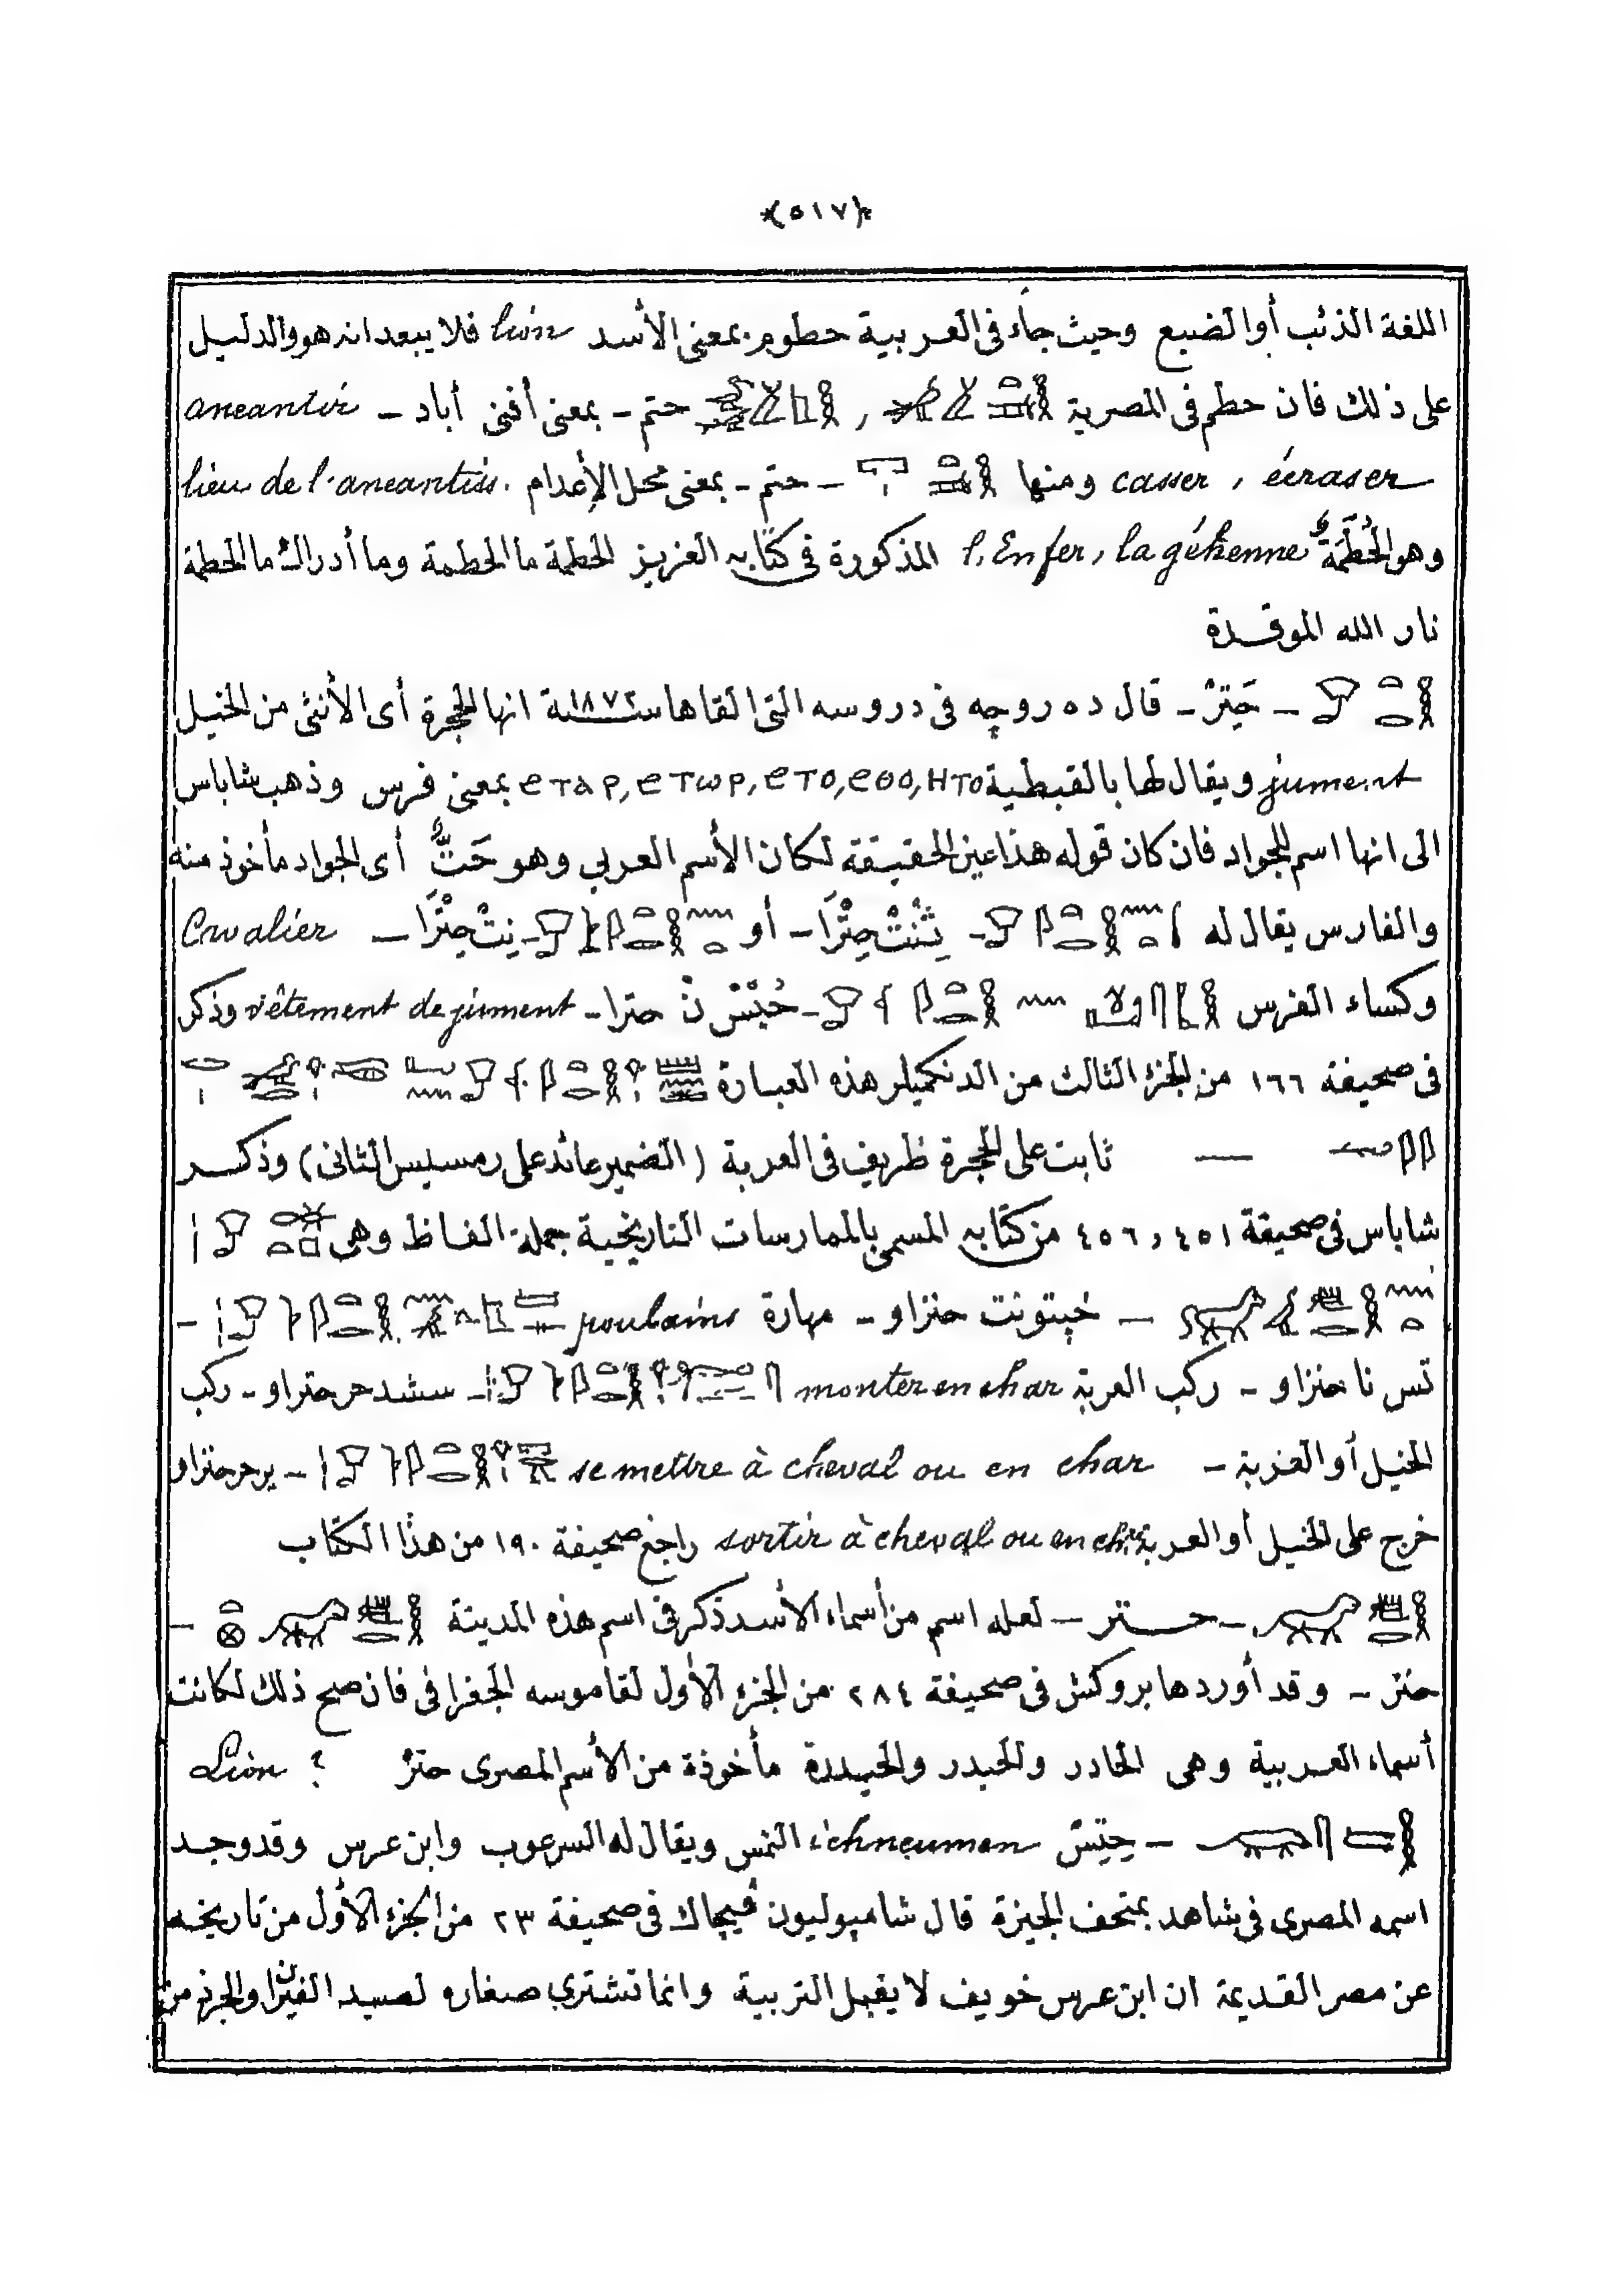 ﴿٥١٧﴾
اللغة الذئب أو الضبع وحيث جاء فى العربية حطوم بمعنى الأسد lion فلا يبعد انه هو والدليل
على ذلك فان حطم فى المصرية , حتم - بمعنى أفنى أباد - aneantir
casser , écraser ومنها - حتم - بمعنى محل الإعدام lieu de l'aneantiss.
وهو الحُطَمَةُ l'Enfer, la géhenne المذكورة فى كتابه العزيز الحطمة ما الحطمة وما أدراك ما الحطمة
نار الله الموقدة
- حَتِرْ - قال ده روجه فى دروسه التى القاها سنة ١٨٧٢ انها الحجرة أى الأنثى من الخيل
jument ويقال لها بالقبطية ϩⲧⲁⲣ, ϩⲧⲱⲣ, ϩⲧⲟ, ϩⲑⲟ, ⲏⲧⲟ بمعنى فرس وذهب شاباس
الى انها اسم للجواد فان كان قوله هذا عين الحقيقة لكان الأسم العربي وهو حَتٌّ أى الجواد مأخوذ منه
والفارس يقال له - ثِنْتْ حِتْرَا - أو - نِتْ حِتْرَا - Cavalier
وكساء الفرس - حُبْسْ نْ حترا - vêtement de jument وذكر
فى صحيفة ١٦٦ من الجزء الثالث من الدنكميلر هذه العبارة
— ثابت على الحجرة ظريف فى العربة (الضمير عائد على رمسيس الثانى) وذكر
شاباس فى صحيفة ٤٥١ , ٤٥٦ من كتابه المسمى بالممارسات التاريخية جملة الفاظ وهى
- خپتونت حتراو - مهارة poulains -
تس نا حتراو - ركب العربة monter en char - سشد حر حتراو - ركب
الخيل أو العربة - se mettre à cheval ou en char - پر حر حتراو
خرج على الخيل أو العربة sortir à cheval ou en char راجع صحيفة ١٩٠ من هذا الكتاب
- حتر - لعله اسم من أسماء الأسد ذكر فى اسم هذه المدينة -
حتر - وقد أوردها بروكش فى صحيفة ٢٨٤ من الجزء الأول لقاموسه الجغرافى فان صح ذلك لكانت
أسماء العربية وهى الخادر والحيدر والحيدرة مأخوذة من الأسم المصرى حترْ ؟ Lion
- حِتِسْ ichneumon النمس ويقال له السرعوب وابن عرس وقد وجد
اسمه المصرى فى شاهد بمتحف الجيزة قال شامپوليون فيچاك فى صحيفة ٢٣ من الجزء الأول من تاريخه
عن مصر القديمة ان ابن عرس خويف لا يقبل التربية وانما تشترى صغاره لصيد الفيران والجرذ من